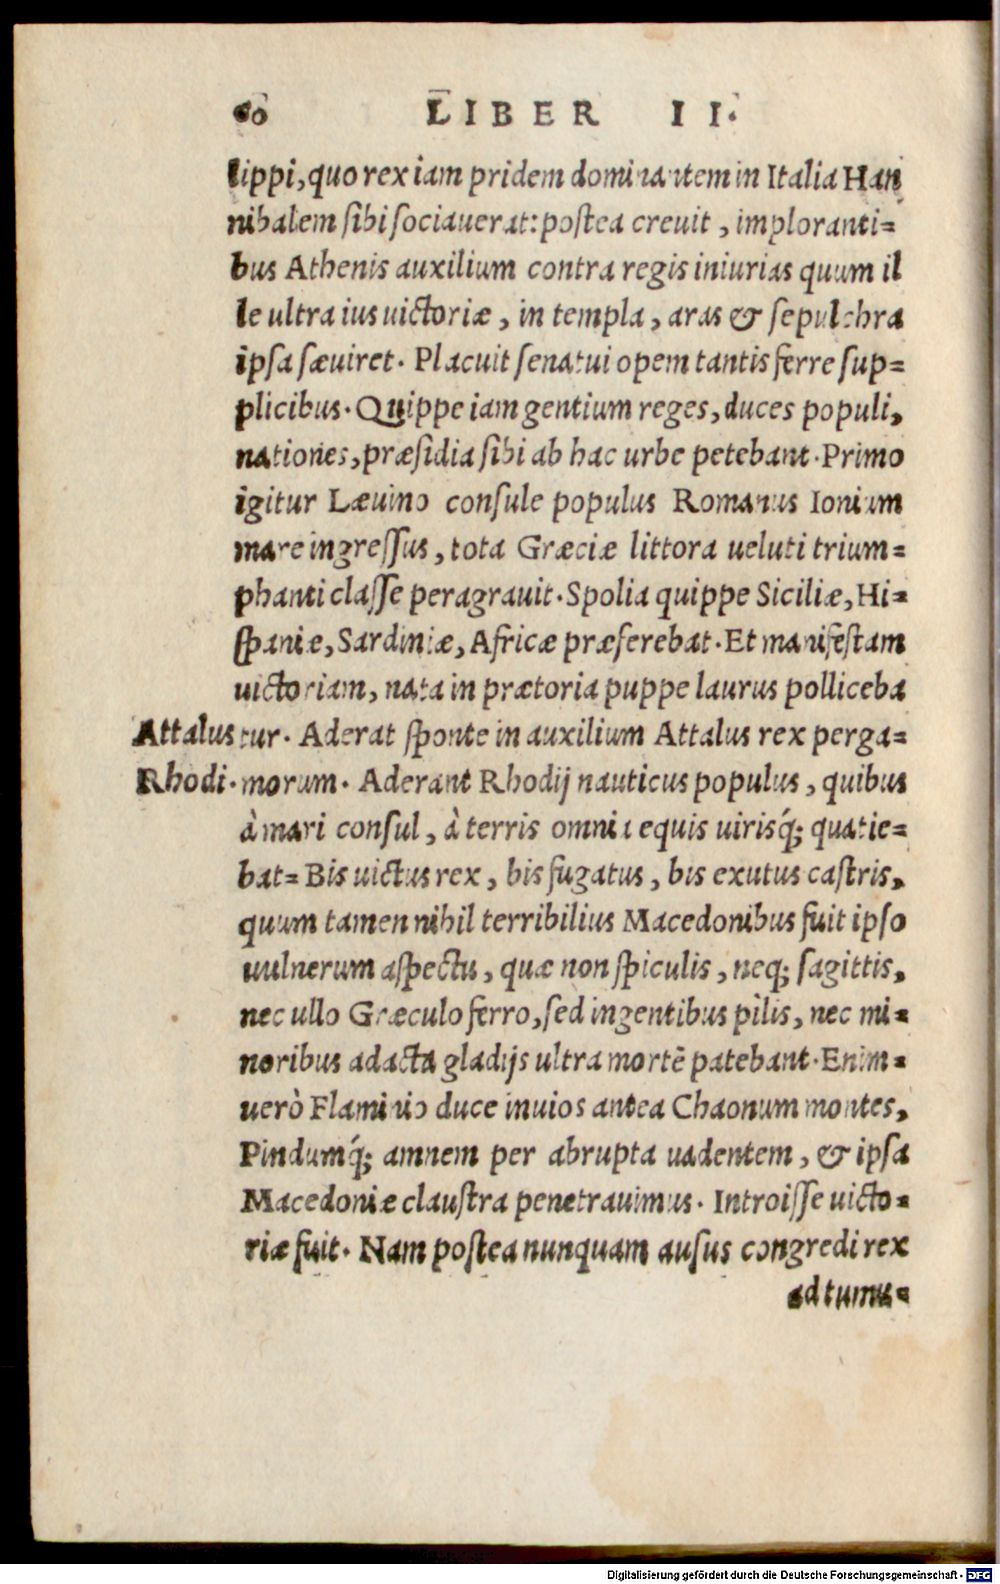 60 LIBER II.
lippi, quo rex iam pridem dominantem in Italia Han
nibalem sibi sociauerat: postea creuit, imploranti=
bus Athenis auxilium contra regis iniurias quum il
le ultra ius uictoriæ, in templa, aras & sepulchra
ipsa sæuiret. Placuit senatui opem tantis ferre sup=
plicibus. Quippe iam gentium reges, duces populi,
nationes, præsidia sibi ab hac urbe petebant. Primo
igitur Læuino consule populus Romanus Ionium
mare ingressus, tota Græciæ littora ueluti trium=
phanti classe peragrauit. Spolia quippe Siciliæ, Hi=
spaniæ, Sardiniæ, Africæ præferebat. Et manifestam
uictoriam, nata in prætoria puppe laurus polliceba
Attalus tur. Aderat sponte in auxilium Attalus rex perga=
Rhodi. morum. Aderant Rhodij nauticus populus, quibus
à mari consul, à terris omnia equis uirisq́; quatie=
bat= Bis uictus rex, bis fugatus, bis exutus castris,
quum tamen nihil terribilius Macedonibus fuit ipso
uulnerum aspectu, quæ non spiculis, neq; sagittis,
nec ullo Græculo ferro, sed ingentibus pilis, nec mi=
noribus adacta gladijs ultra mortē patebant. Enim=
uerò Flaminio duce inuios antea Chaonum montes,
Pindumq́; amnem per abrupta uadentem, & ipsa
Macedoniæ claustra penetrauimus. Introisse uicto=
riæ fuit. Nam postea nunquam ausus congredi rex
ad tumu=
Digitalisierung gefördert durch die Deutsche Forschungsgemeinschaft - DFG